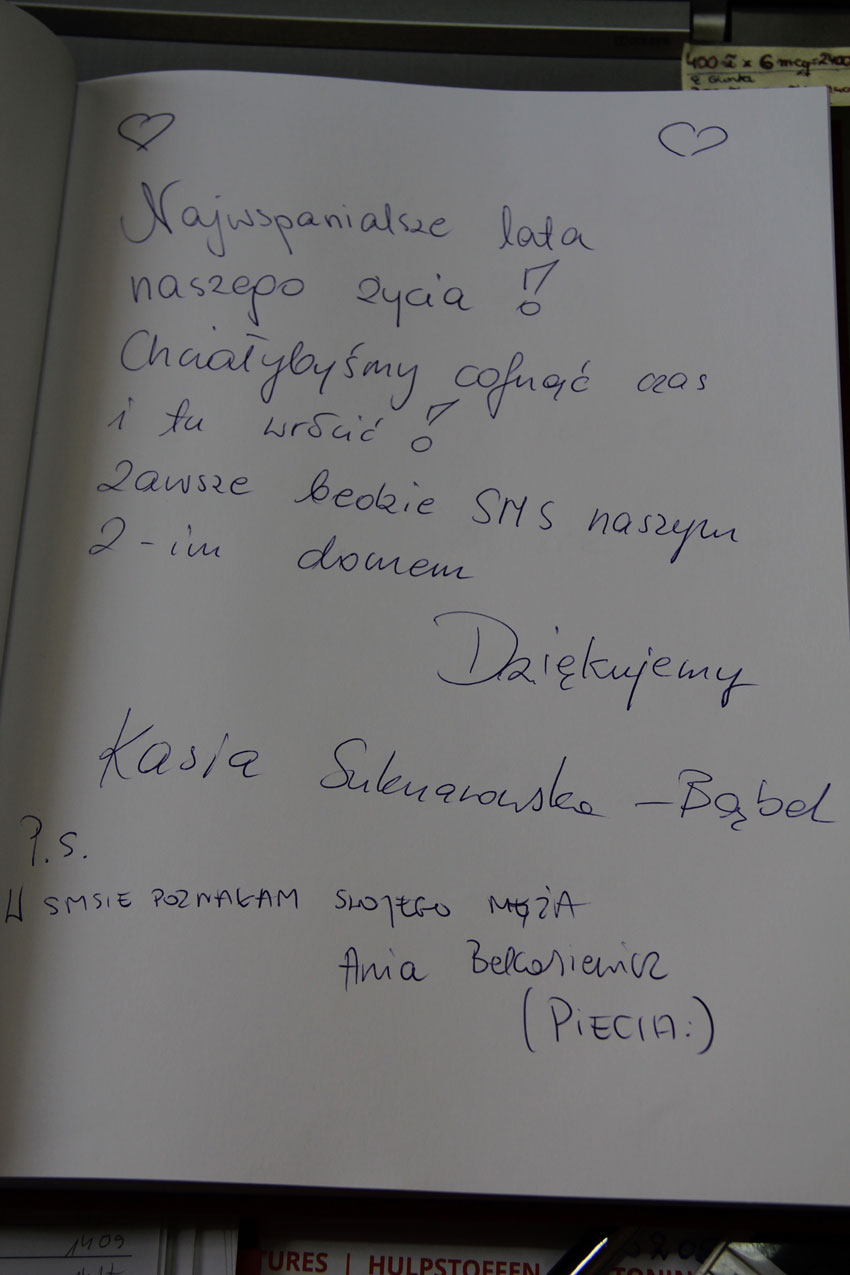 400 x 6 mcg = 2400
Najwspanialsze lata
naszego życia !
Chciałybyśmy cofnąć czas
i tu wrócić !
Zawsze będzie SMS naszym
2-im domem
Dziękujemy
Kasia - Bąbel
P.s.
W SMSIE POZNAŁAM SWOJEGO MĘŻA
Ania
(PIECIA:)
1409
TURES | HULPSTOFFEN
TONIN